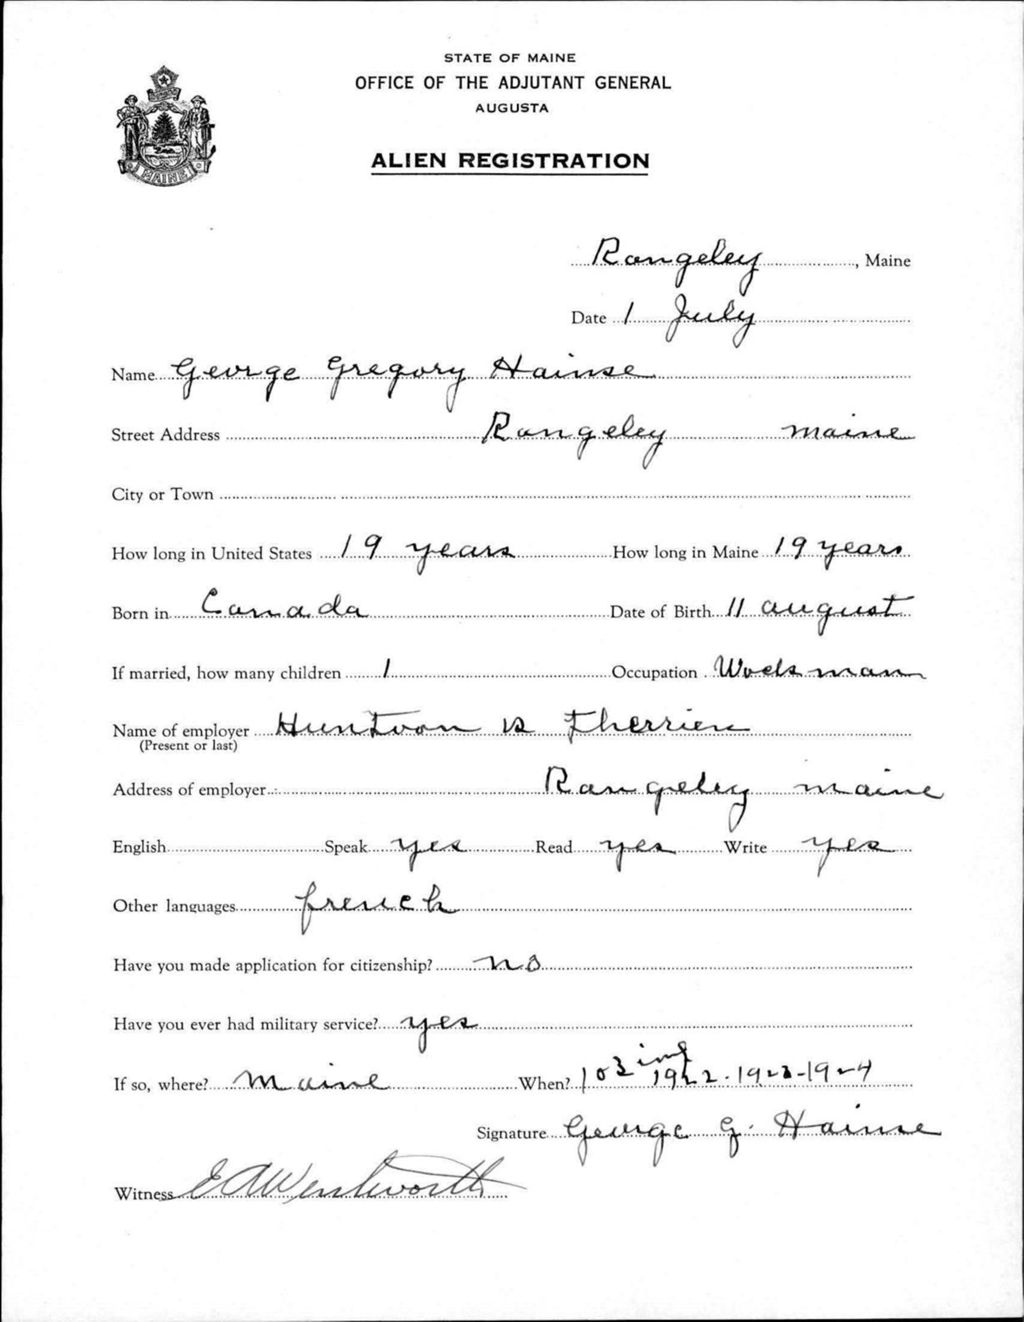 STATE OF MAINE
OFFICE OF THE ADJUTANT GENERAL
AUGUSTA
ALIEN REGISTRATION
MAINE
Rangeley, Maine
Date 1 July
Name George Gregory Hainse
Street Address Rangeley Maine
City or Town
How long in United States 19 years How long in Maine 19 years
Born in Canada Date of Birth 11 august
If married, how many children 1 Occupation Woodsman
Name of employer Huntoon & Therrien
(Present or last)
Address of employer Rangeley maine
English Speak yes Read yes Write yes
Other languages french
Have you made application for citizenship? no
Have you ever had military service? yes
If so, where? Maine When? 103 inf 1922-1923-1924
Signature George G. Hainse
Witness E A Wentworth